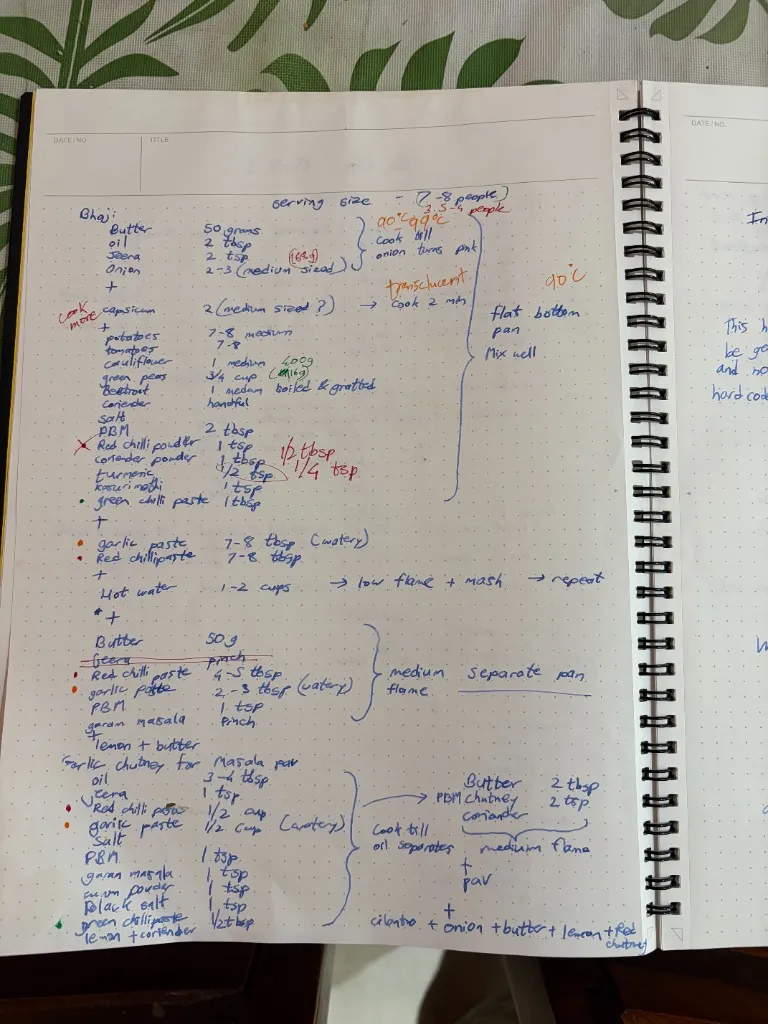 DATE/NO.
TITLE
DATE/NO.
serving size - (7-8 people)
3.5-4 people
Bhaji
90°C 99°C
Butter 50 grams
oil 2 tbsp cook till
Jeera 2 tsp onion turns pink
Onion 2-3 (medium sized)
+
translucent
90°C
cook more
capsicum 2 (medium sized ?) → cook 2 min
+
flat bottom
pan
Mix well
potatoes 7-8 medium
tomatoes 7-8
cauliflower 1 medium 400g
green peas 3/4 cup
Beetroot 1 medium boiled & gratted
coriander handful
salt
PBM 2 tbsp
Red chilli powder 1 tsp
coriender powder 1 tbsp 1/2 tbsp
turmeric 1/2 tsp 1/4 tsp
kasuri methi 1 tsp
green chilli paste 1 tbsp
+
garlic paste 7-8 tbsp (watery)
Red chillipaste 7-8 tbsp
+
Hot water 1-2 cups → low flame + mash → repeat
* +
Butter 50 g
Geera pinch
Red chilli paste 4-5 tbsp medium separate pan
garlic paste 2-3 tbsp (watery) flame
PBM 1 tsp
garam masala Pinch
+
lemon + butter
Garlic chutney for Masala pav
oil 3-4 tbsp
Jeera 1 tsp
Red chilli paste 1/2 cup
garlic paste 1/2 cup (watery)
Salt
PBM 1 tsp
garam masala 1 tsp
cumin powder 1 tsp
Black salt 1 tsp
green chillipaste 1/2 tbsp
lemon + coriender
cook till
oil separates
Butter 2 tbsp
PBM chutney 2 tsp
coriender
medium flame
+
pav
+
cilantro + onion + butter + lemon + Red
chutney
In
This h
be ge
and no
hard cod